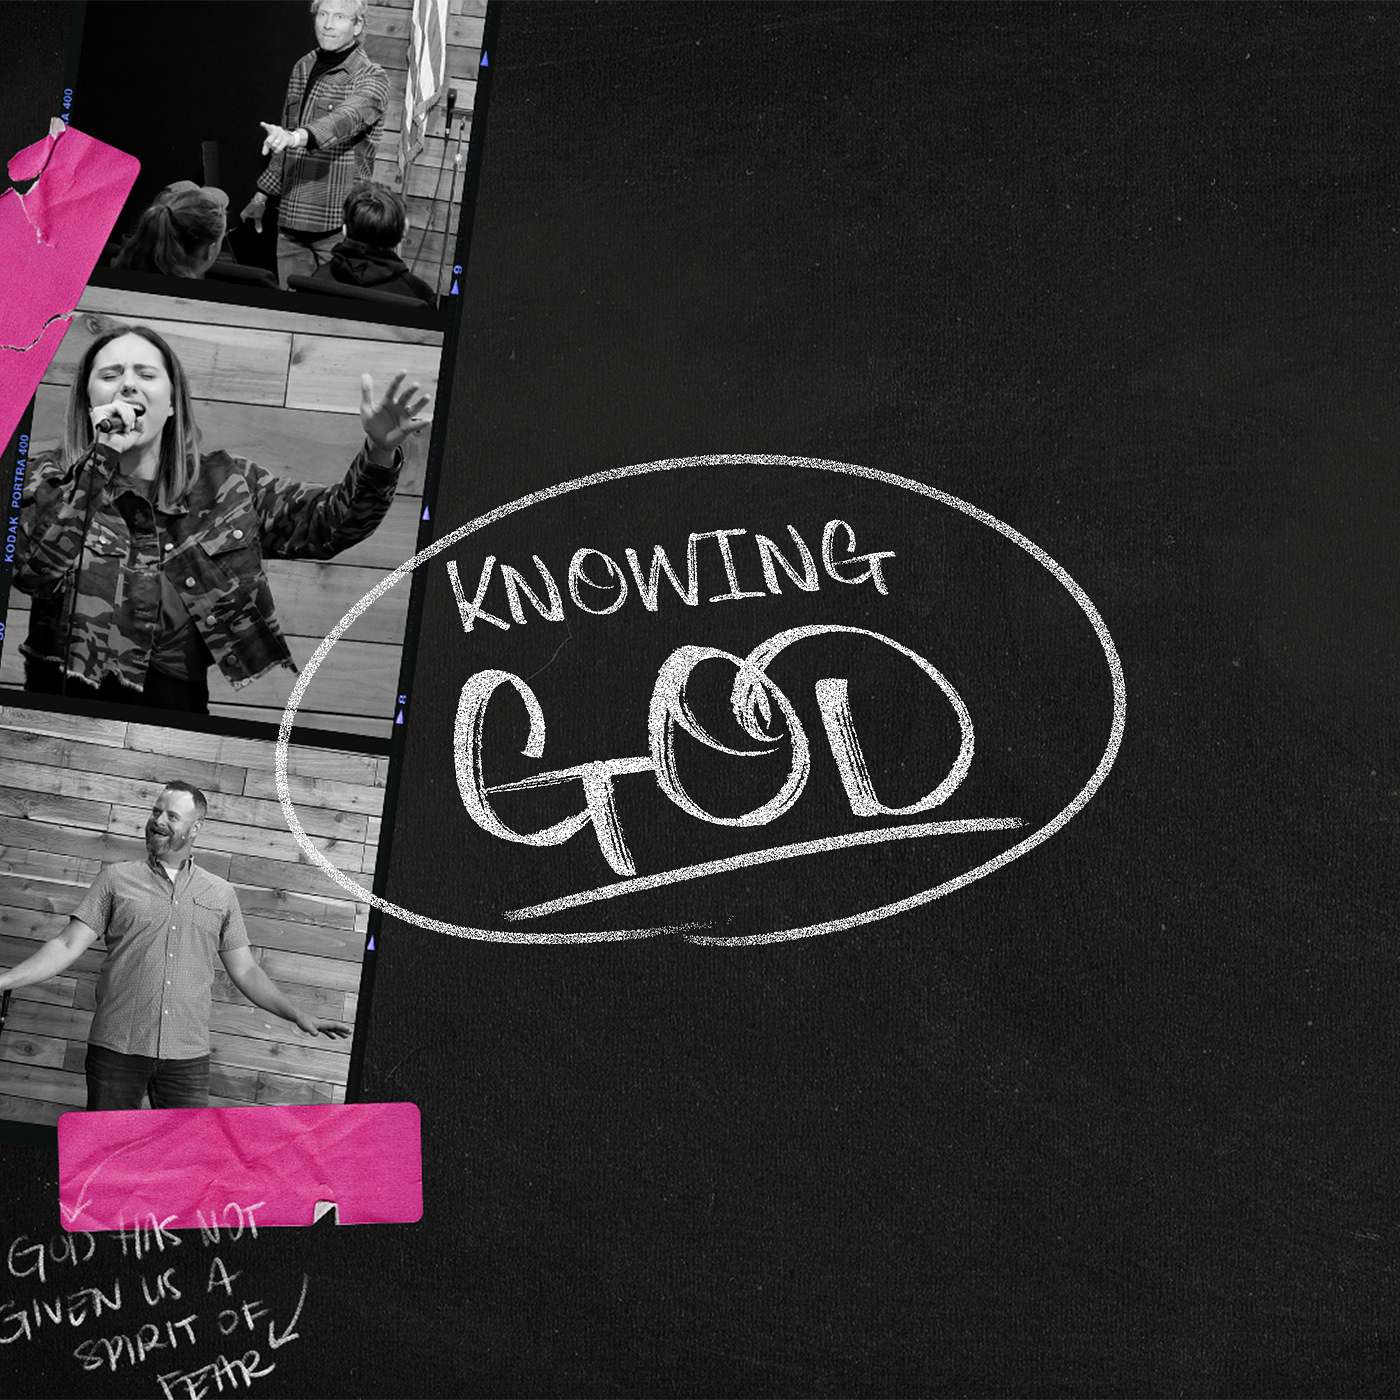 KODAK PORTRA 400
KNOWING
GOD
GOD HAS NOT
GIVEN US A
SPIRIT OF
FEAR